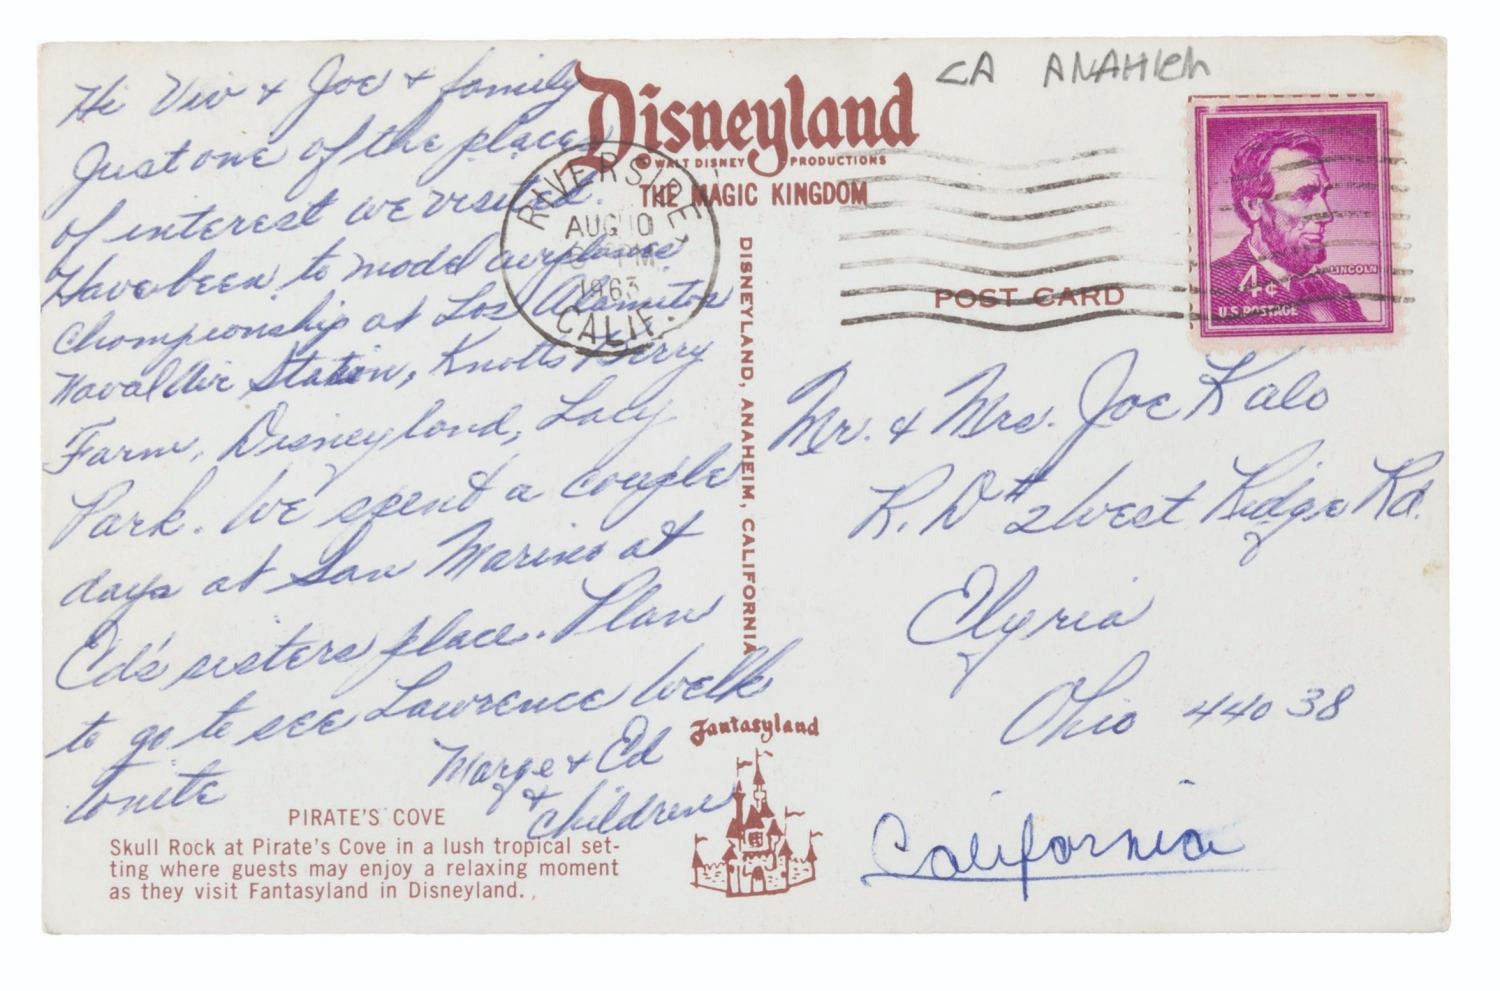 Hi Viv & Joe & family
Just one of the places
of interest we visited.
Have been to model airplanes
Championship at Los Alamitos
Naval Air Station, Knotts Berry
Farm, Disneyland, Lacy
Park. We spent a couple
days at San Marino at
Ed's sisters place. Plan
to go to see Lawrence Welk
tonite
Marge & Ed
& Children
PIRATE'S COVE
Skull Rock at Pirate's Cove in a lush tropical set-
ting where guests may enjoy a relaxing moment
as they visit Fantasyland in Disneyland.
Disneyland
© WALT DISNEY PRODUCTIONS
THE MAGIC KINGDOM
RIVERSIDE
AUG 10
PM
1963
CALIF.
DISNEYLAND, ANAHEIM, CALIFORNIA
Fantasyland
CA ANAHIEM
POST CARD
LINCOLN
4¢
U.S. POSTAGE
Mr. & Mrs. Joe Kalo
R. D # 2 West Ridge Rd.
Elyria
Ohio 44038
California